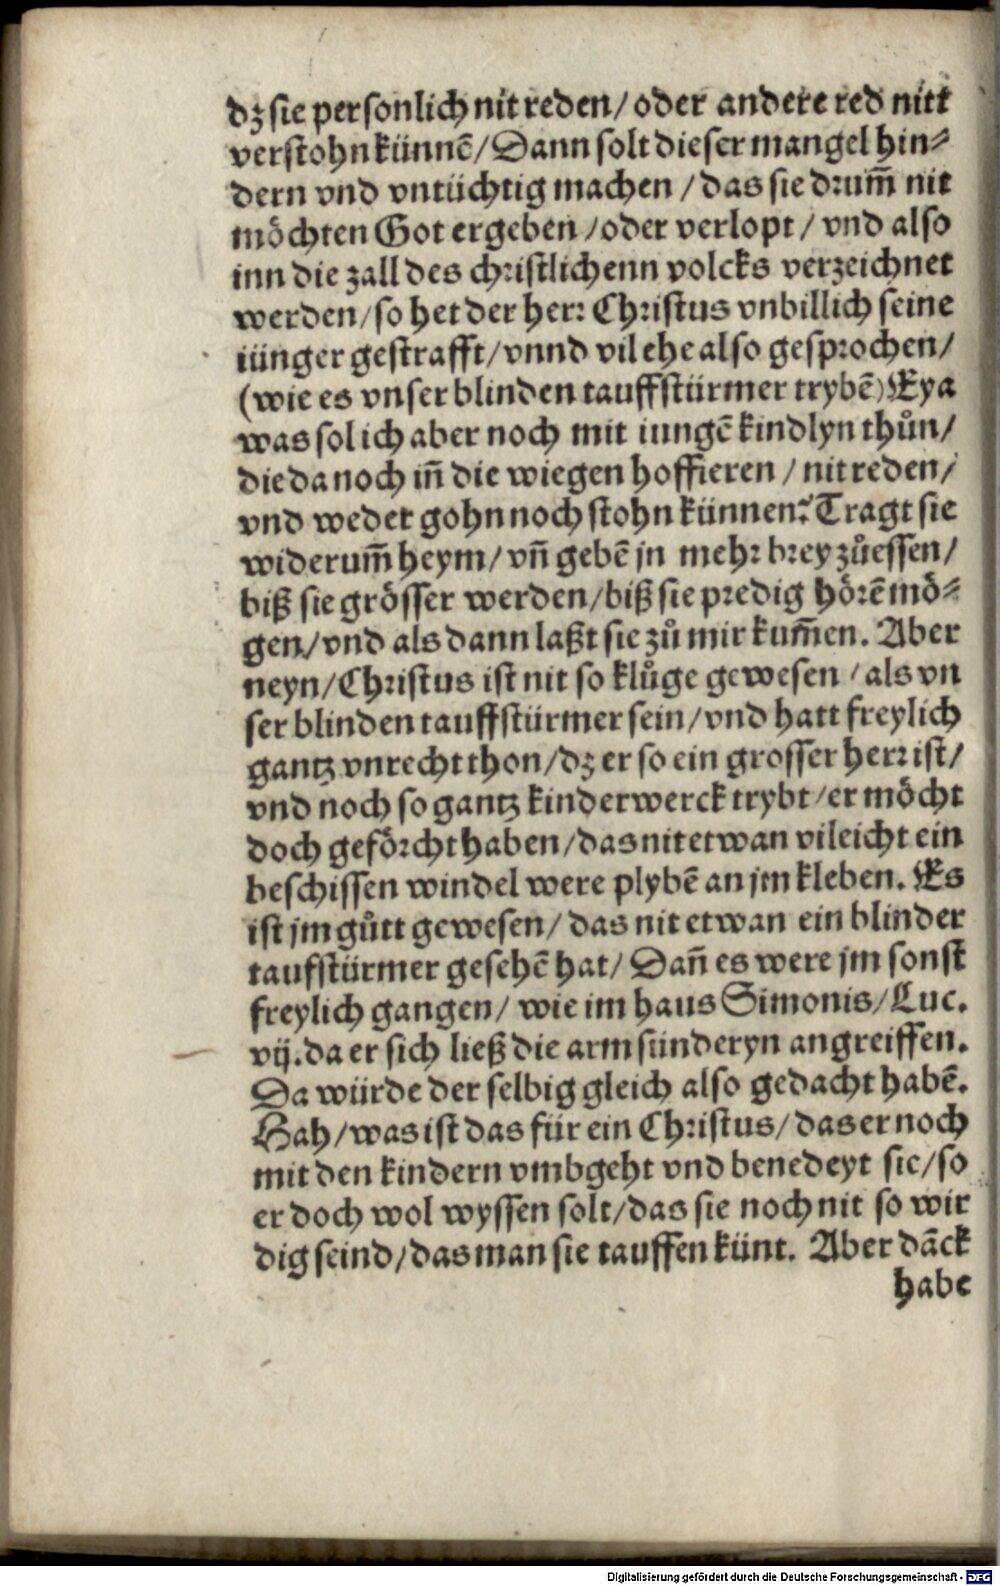 dz sie personlich nit reden/ oder andere red nitt
verstohn künnē/ Dann solt dieser mangel hin⸗
dern vnd vntüchtig machen / das sie drum̄ nit
möchten Got ergeben /oder verlopt / vnd also
inn die zall des christlichenn volcks verzeichnet
werden/ so het der herr Christus vnbillich seine
iünger gestrafft/ vnnd vil ehe also gesprochen/
(wie es vnser blinden tauffstürmer trybē) Eya
was sol ich aber noch mit iungē kindlyn thůn/
die da noch in̄ die wiegen hoffieren / nit reden/
vnd weder gohn noch stohn künnen? Tragt sie
widerum̄ heym/ vn̄ gebē jn mehr brey zůessen/
biß sie grösser werden/ biß sie predig hörē mö⸗
gen/ vnd als dann laßt sie zů mir kum̄en. Aber
neyn/ Christus ist nit so klůge gewesen / als vn
ser blinden tauffstürmer sein/ vnd hatt freylich
gantz vnrecht thon/ dz er so ein grosser herr ist/
vnd noch so gantz kinderwerck trybt/ er möcht
doch geförcht haben/ das nit etwan vileicht ein
beschissen windel were plybē an jm kleben. Es
ist jm gůtt gewesen/ das nit etwan ein blinder
taufstürmer gesehē hat/ Dan̄ es were jm sonst
freylich gangen/ wie im haus Simonis/ Luc.
vij. da er sich ließ die arm sünderyn angreiffen.
Da würde der selbig gleich also gedacht habē.
Hah/ was ist das für ein Christus/ das er noch
mit den kindern vmbgeht vnd benedeyt sie/ so
er doch wol wyssen solt/ das sie noch nit so wir
dig seind/ das man sie tauffen künt. Aber dāck
habe
Digitalisierung gefördert durch die Deutsche Forschungsgemeinschaft - DFG